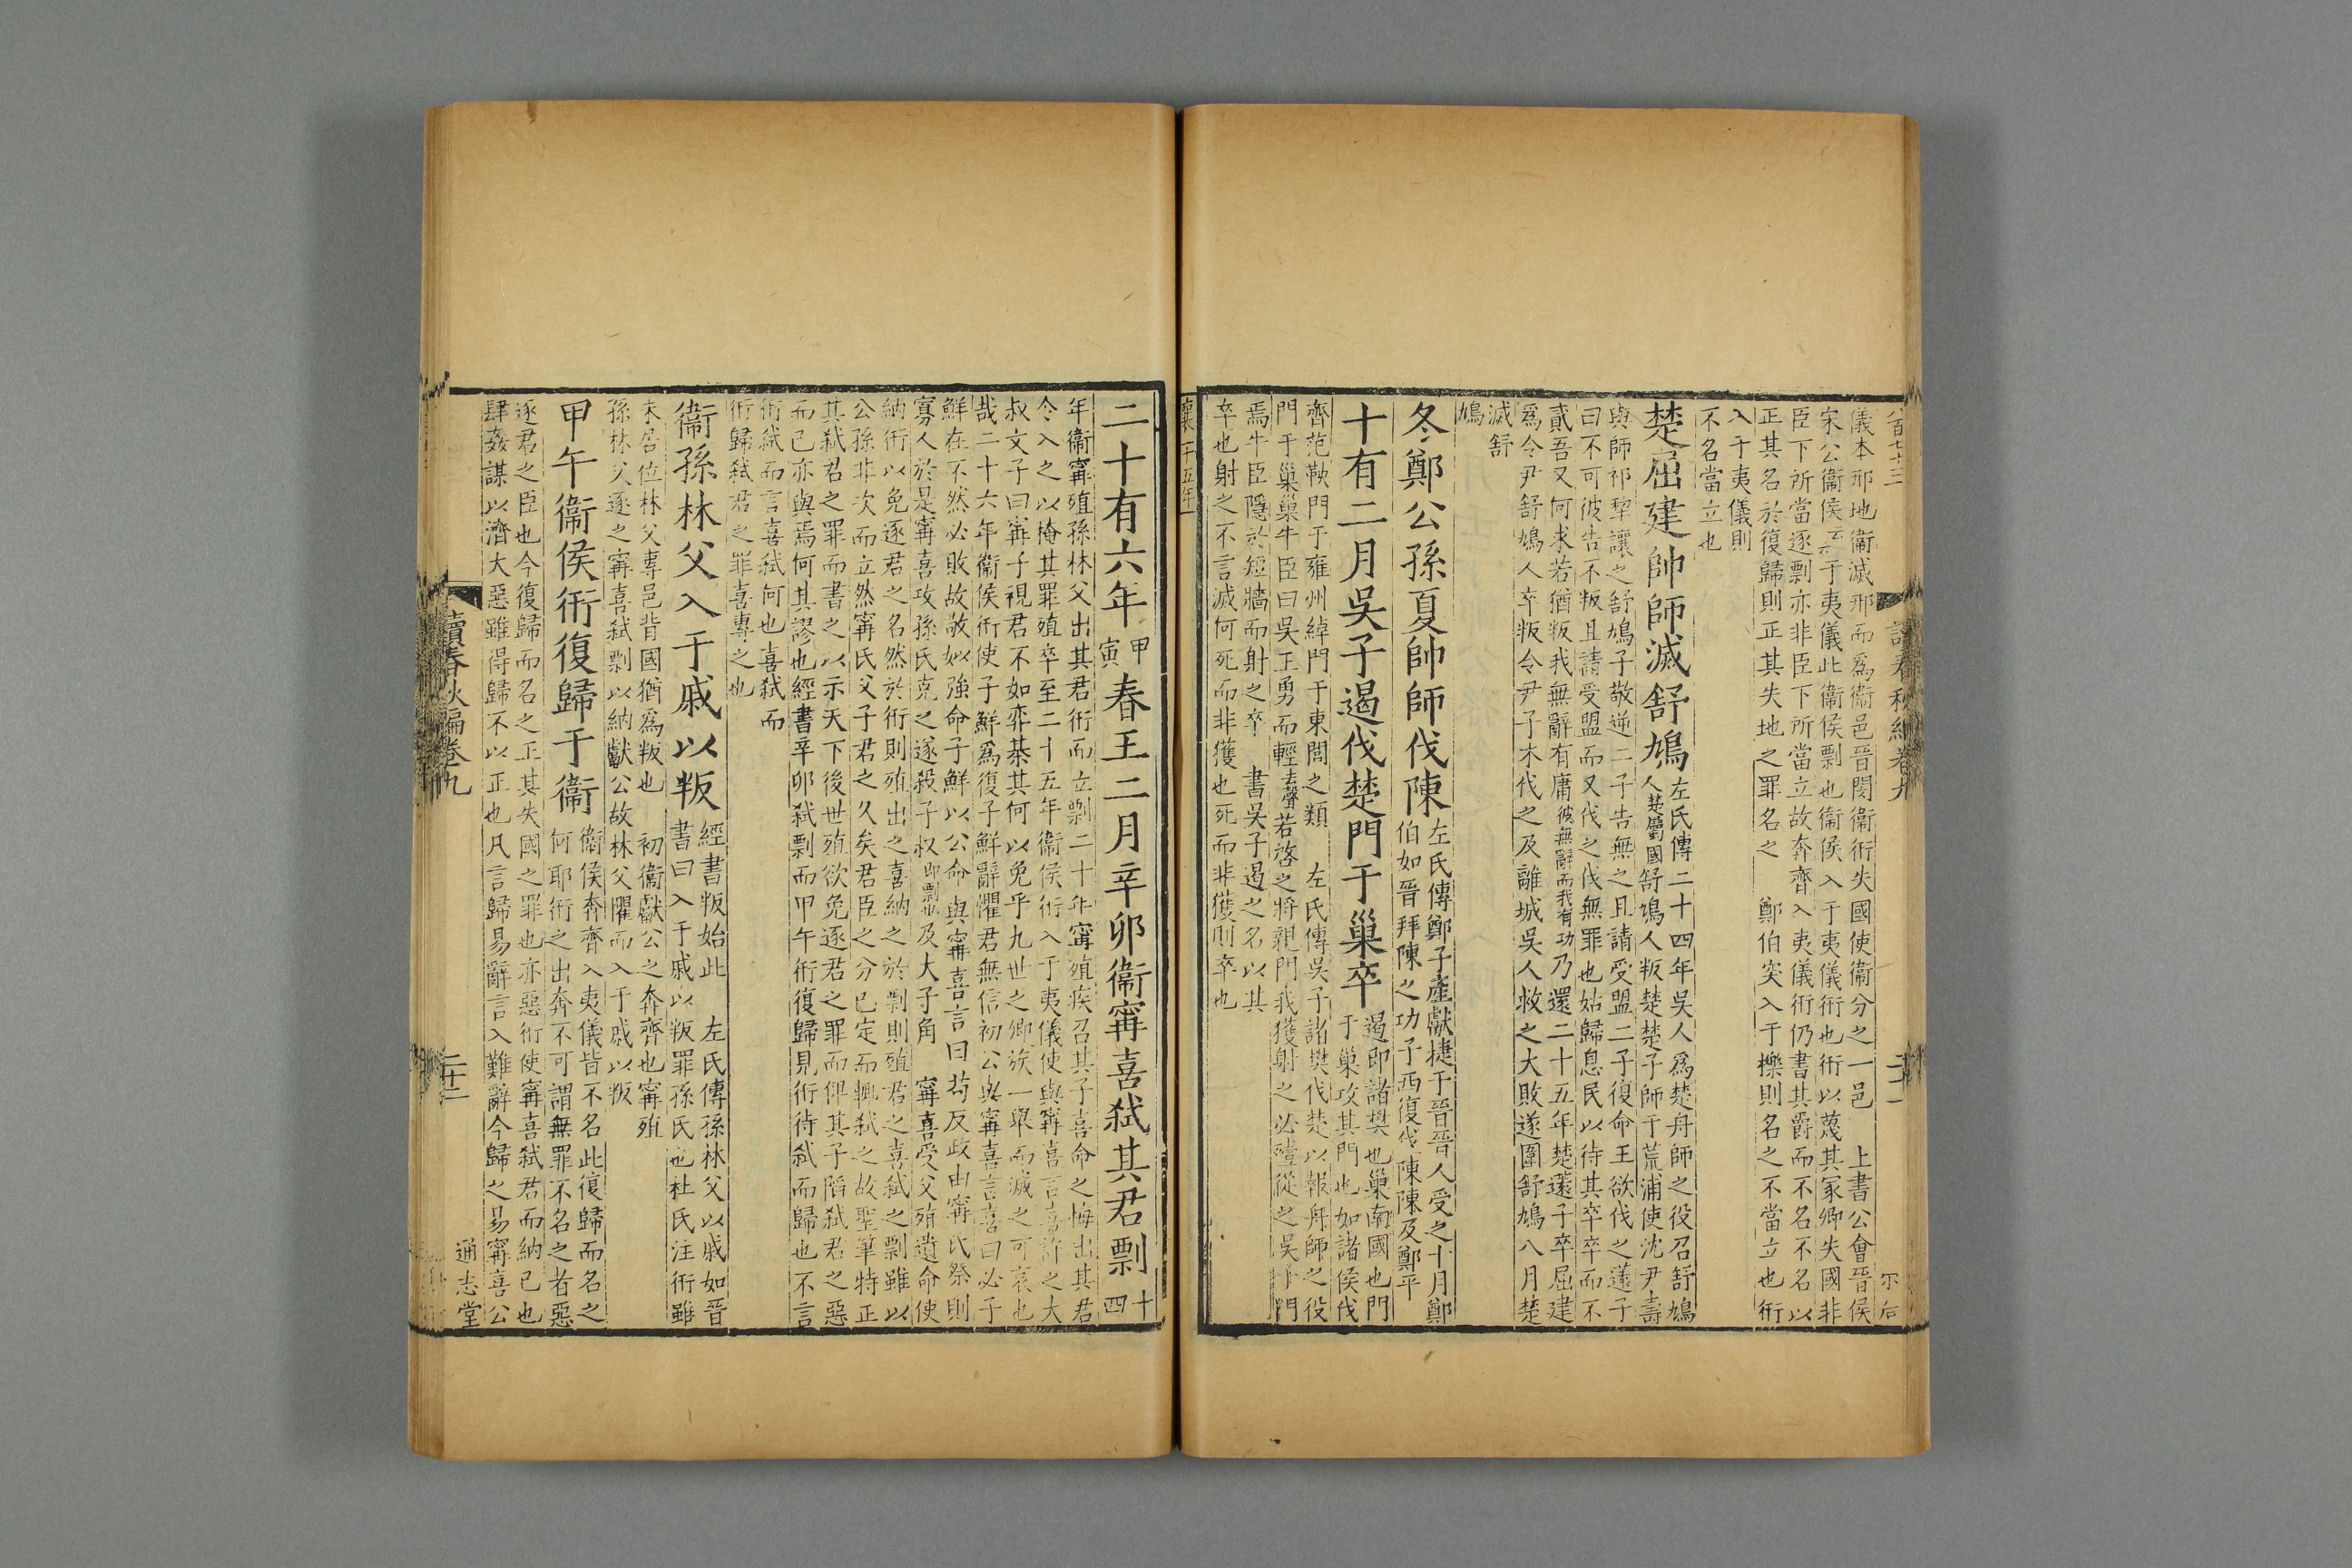 儀本邢地衞滅邢而爲衞邑晉閔衞衎失國使衞分之一邑　上書公會晉侯
宋公衞侯云云于夷儀此衞侯剽也衞侯入于夷儀衎也衎以蔑其冢卿失國非
臣下所當逐剽亦非臣下所當立故奔齊入夷儀衎仍書其爵而不名不名以
正其名於復歸則正其失地之罪名之　鄭伯突入于櫟則名之不當立也衎
入于夷儀則
不名當立也
楚屈建帥師滅舒鳩
左氏傳二十四年吳人爲楚舟師之役召舒鳩
人楚屬國舒鳩人叛楚楚子師于荒浦使沈尹壽
與師祁犂讓之舒鳩子敬逆二子告無之且請受盟二子復命王欲伐之薳子
曰不可彼告不叛且請受盟而又伐之伐無罪也姑歸息民以待其卒卒而不
貳吾又何求若猶叛我無辭有庸彼無辭而我有功乃還二十五年楚薳子卒屈建
爲令尹舒鳩人卒叛令尹子木伐之及離城吳人救之大敗遂圍舒鳩八月楚
滅舒
鳩
冬鄭公孫夏帥師伐陳
左氏傳鄭子產獻捷于晉晉人受之十月鄭
伯如晉拜陳之功子西復伐陳陳及鄭平
十有二月吳子遏伐楚門于巢卒
遏即諸樊也巢南國也門
于巢攻其門也如諸侯伐
齊范鞅門于雍州綽門于東閭之類　左氏傳吳子諸樊伐楚以報舟師之役
門于巢巢牛臣曰吳王勇而輕去聲若啓之將親門我獲射之必殪從之吳子門
焉牛臣隱於短牆而射之卒　書吳子遏之名以其
卒也射之不言滅何死而非獲也死而非獲則卒也
襄二十五年
二十有六年
甲
寅
春王二月辛卯衞甯喜弑其君剽
十
四
年衞甯殖孫林父出其君衎而立剽二十年甯殖疾召其子喜命之悔出其君
令入之以掩其罪殖卒至二十五年衞侯衎入于夷儀使與甯喜言喜許之大
叔文子曰甯子視君不如弈棊其何以免乎九世之卿族一舉而滅之可哀也
哉二十六年衞侯衎使子鮮爲復子鮮辭懼君無信初公與甯喜言喜曰必子
鮮在不然必敗故敬姒強命子鮮以公命與甯喜言曰茍反政由甯氏祭則
寡人於是甯喜攻孫氏克之遂殺子叔即剽也及大子角　甯喜受父殖遺命使
納衎以免逐君之名然於衎則殖出之喜納之於剽則殖君之喜弑之剽雖以
公孫非次而立然甯氏父子君之久矣君臣之分已定而輒弑之故聖筆特正
其弑君之罪而書之以示天下後世殖欲免逐君之罪而俾其子陷弑君之惡
而已亦與焉何其謬也經書辛卯弑剽而甲午衎復歸見衎待弑而歸也不言
衎弑而言喜弑何也喜弑而
衎歸弑君之罪喜專之也
衞孫林父入于戚以叛
經書叛始此　左氏傳孫林父以戚如晉
書曰入于戚以叛罪孫氏也杜氏注衎雖
未居位林父專邑背國猶爲叛也　初衞獻公之奔齊也甯殖
孫林父逐之甯喜弑剽以納獻公故林父懼而入于戚以叛
甲午衞侯衎復歸于衞
衞侯奔齊入夷儀皆不名此復歸而名之
何耶衎之出奔不可謂無罪不名之者惡
逐君之臣也今復歸而名之正其失國之罪也亦惡衎使甯喜弑君而納已也
肆姦謀以濟大惡雖得歸不以正也凡言歸易辭言入難辭今歸之易甯喜公
讀春秋編卷九
二十二
通志堂